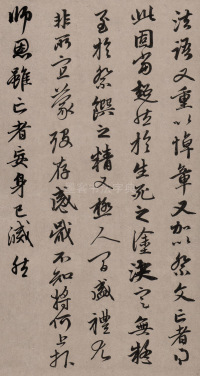 法語又重以悼章又加以祭文亡者得
此固當超然於生死之塗決定無疑
至於祭饌之精又極人間盛禮尤
非所宜蒙歿存感戴不知將何上報
師恩雖亡者妄身已滅然